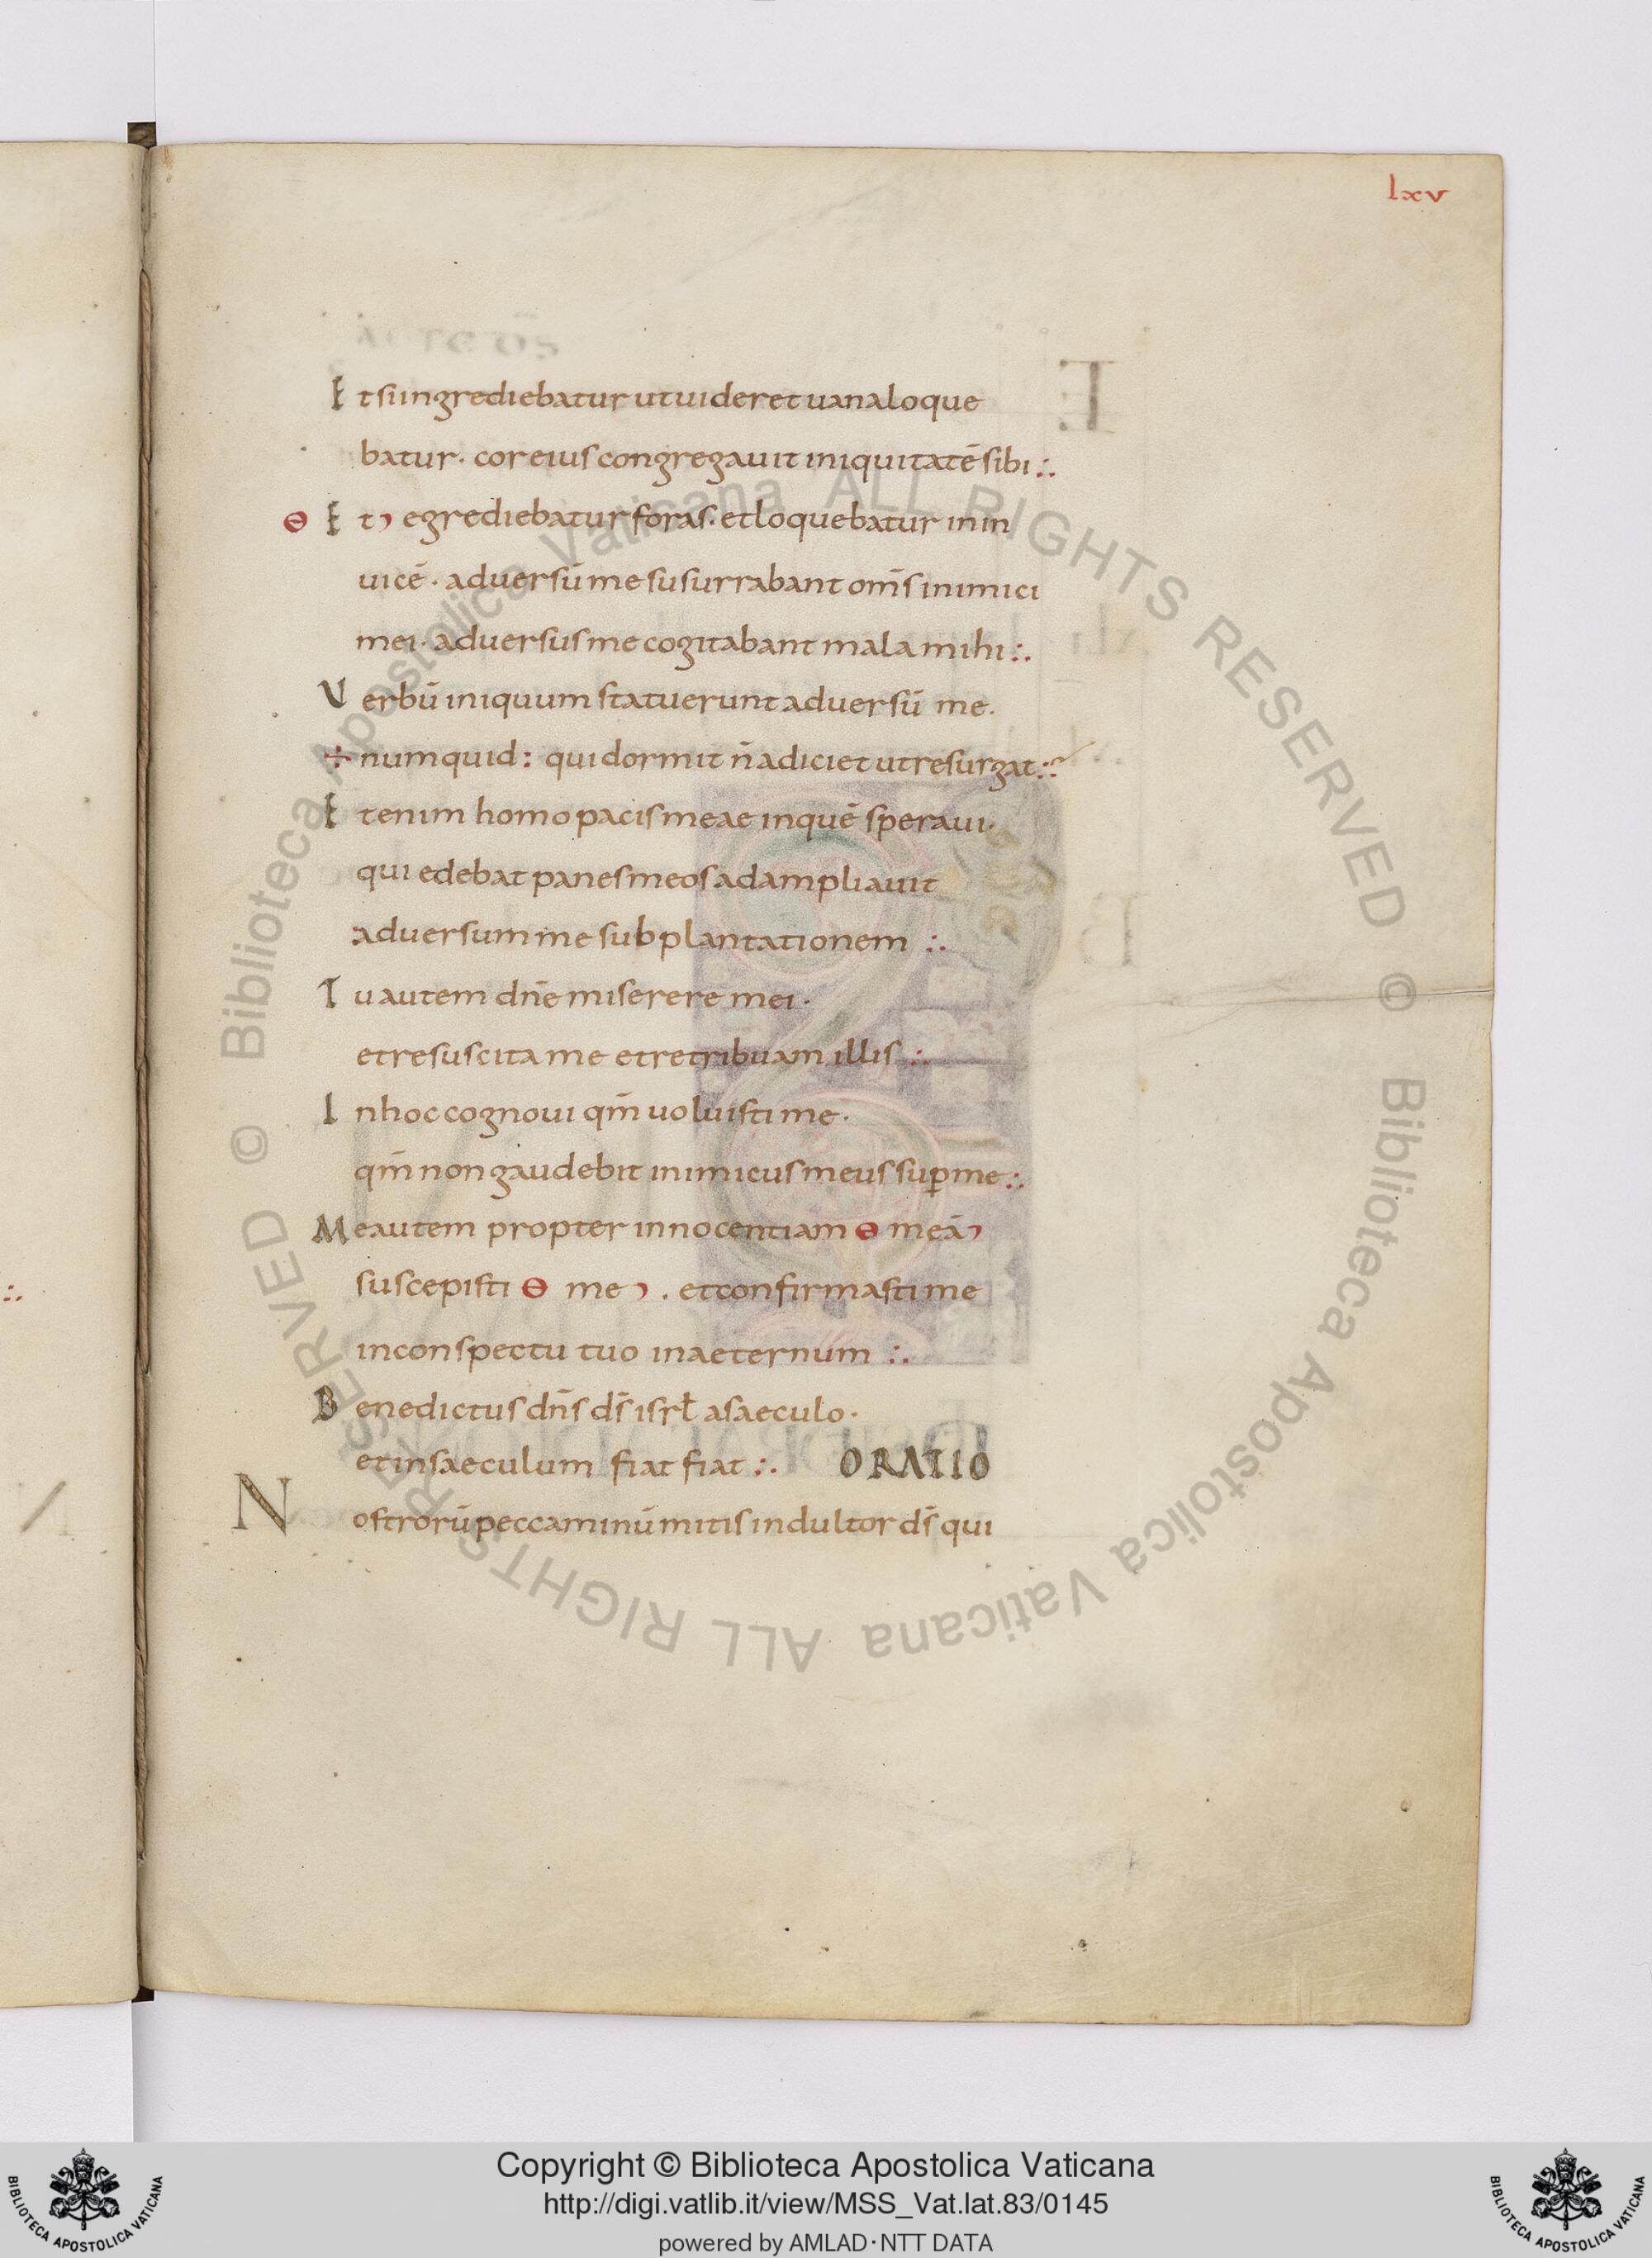 lxv
Et si ingrediebatur ut uideret uana loque
batur · cor eius congregauit iniquitatē sibi :.
ɵ Et, egrediebatur foras · et loquebatur in in
uicē · aduersū me susurrabant om̄s inimici
mei · aduersus me cogitabant mala mihi :.
Verbū iniquum statuerunt aduersū me .
÷ numquid : qui dormit n̄ adiciet ut resurgat :.
Etenim homo pacis meae in quē speraui ·
qui edebat panes meos adampliauit
aduersum me subplantationem :.
Tu autem dn̄e miserere mei ·
et resuscita me et retribuam illis :.
In hoc cognoui qm̄ uoluisti me ·
qm̄ non gaudebit inimicus meus suꝑ me :.
Me autem propter innocentiam ɵ meā,
suscepisti ɵ me , . et confirmasti me
in conspectu tuo in aeternum :.
Benedictus dn̄s ds̄ isrł a saeculo ·
et in saeculum fiat fiat :. ORATIO
Nostrorū peccaminū mitis indultor ds̄ qui
Biblioteca Apostolica Vaticana ALL RIGHTS RESERVED ©
Biblioteca Apostolica Vaticana ALL RIGHTS RESERVED ©
Copyright © Biblioteca Apostolica Vaticana
http://digi.vatlib.it/view/MSS_Vat.lat.83/0145
powered by AMLAD·NTT DATA
BIBLIOTECA APOSTOLICA VATICANA
BIBLIOTECA APOSTOLICA VATICANA